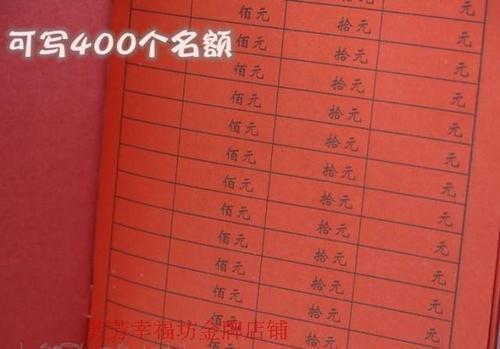 可写400个名额
拾元 元
佰元 拾元 元
佰元 拾元 元
佰元 拾元 元
佰元 拾元 元
佰元 拾元 元
佰元 拾元 元
佰元 拾元 元
佰元 拾元 元
佰元 拾元 元
佰元 拾元 元
佰元 拾元 元
芳幸福坊金牌店铺